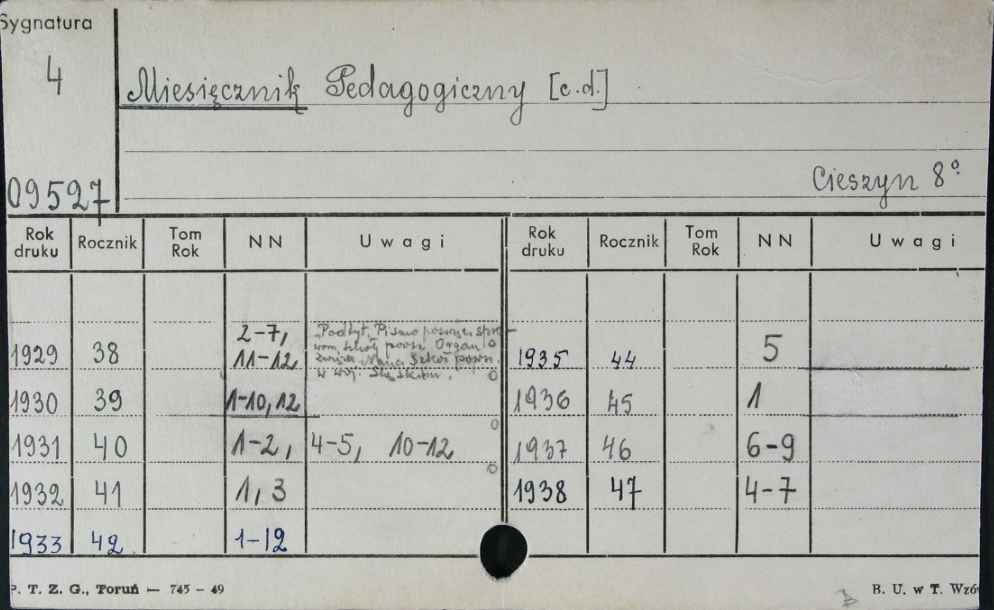 Sygnatura
4
Miesięcznik Pedagogiczny [c.d.]
09527
Cieszyn 8°
Rok druku Rocznik Tom Rok NN Uwagi Rok druku Rocznik Tom Rok NN Uwagi
1929 38 2-7, 11-12, Podtyt. Pismo poświęc. spra-
wom szkoły powsz. Organ
Naucz. Szkół powsz.
w woj. Śląskim.
1935 44 5
1930 39 1-10, 12
1936 45 1
1931 40 1-2, 4-5, 10-12
1937 46 6-9
1932 41 1, 3
1938 47 4-7
1933 42 1-12
P. T. Z. G., Toruń — 745 - 49
B. U. w T. Wzó